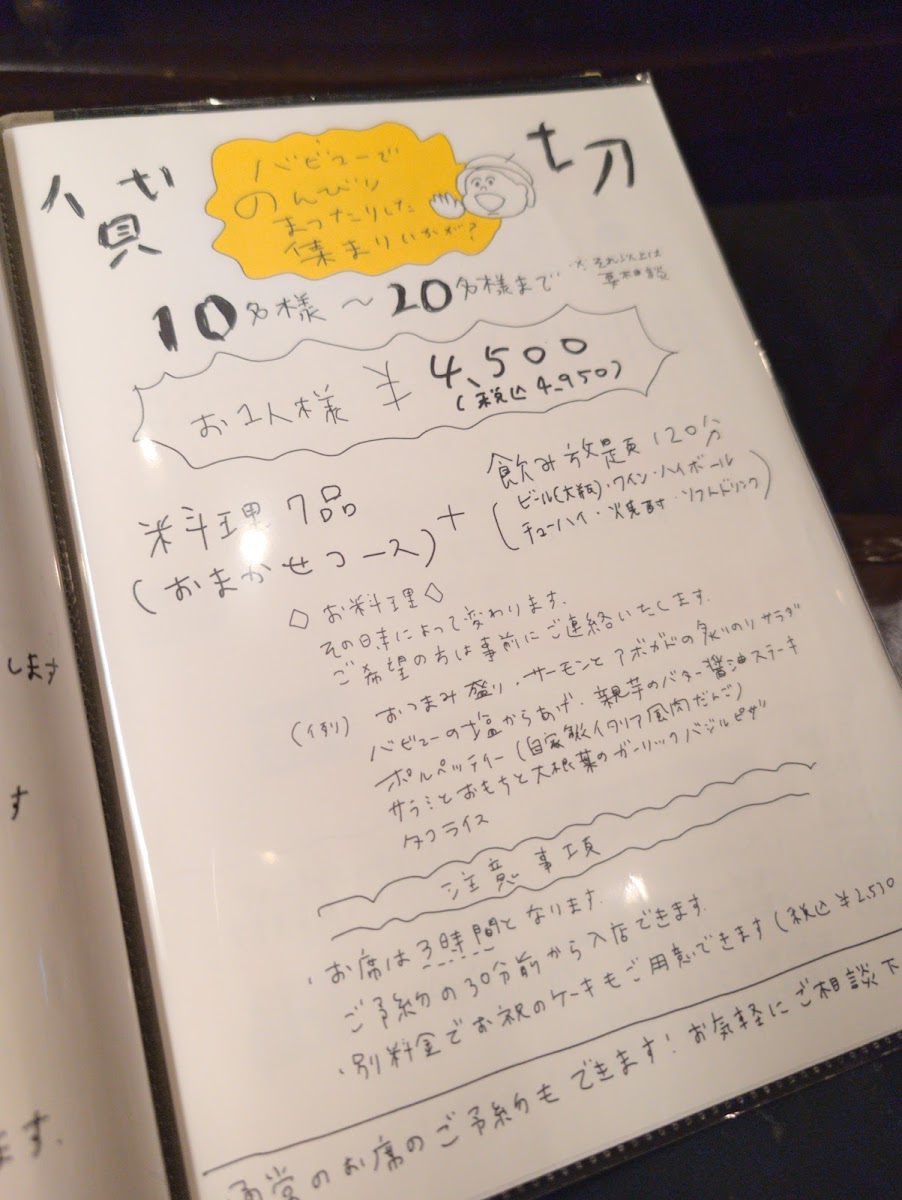 貸切
バビューで
のんびり
まったりした
集まりいかが?
10名様〜20名様まで
※それ以上は
要相談
お1人様 ¥4,500
(税込4,950)
料理7品
(おまかせコース)
+
飲み放題120分
(ビール(大瓶)・ワイン・ハイボール
チューハイ・焼酎・ソフトドリンク)
◇お料理◇
その日によって変わります.
ご希望の方は事前にご連絡いたします.
(例) おつまみ盛り・サーモンとアボガドの炙りのりサラダ
バビューの塩からあげ・親芋のバター醤油ステーキ
ポルペッティー(自家製イタリア風肉だんご)
サラミとおもちと大根葉のガーリックバジルピザ
タコライス
注意事項
・お席は3時間となります.
ご予約の30分前から入店できます.
・別料金でお祝のケーキもご用意できます(税込¥2,530
通常のお席のご予約もできます!お気軽にご相談下
します
す
ます.